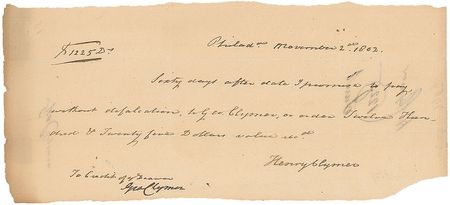 Philada. November 2nd. 1802.
$1225 Ds
Sixty days after date I promise to pay
without defalcation, to Geo Clymer, or order Twelve Hun-
dred & Twenty five Dollars value recd.
Henry Clymer
To Credit of ye Drawer
Geo Clymer